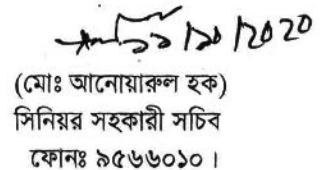 ১১/১০/2020
(মোঃ আনোয়ারুল হক)
সিনিয়র সহকারী সচিব
ফোনঃ ৯৫৬৬০১০।